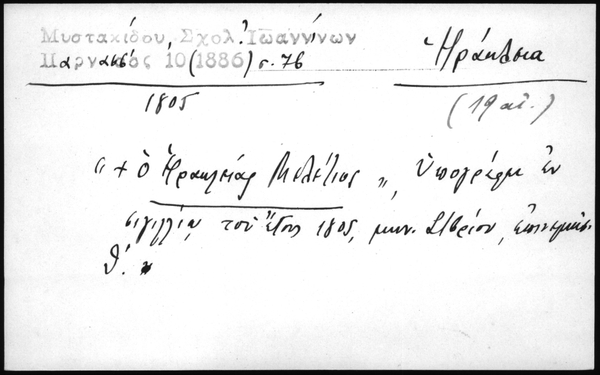 Μυστακίδου, Σχολ. Ἰωαννίνων
Παρνασσός, 10 (1886) σ. 76
Ἡράκλεια
1805
(19 αἰ.)
"+ ὁ Ἡρακλείας Μελέτιος", ὑπογράφει ἐν
σιγιλλίῳ τοῦ ἔτους 1805, μην. 
θ΄.